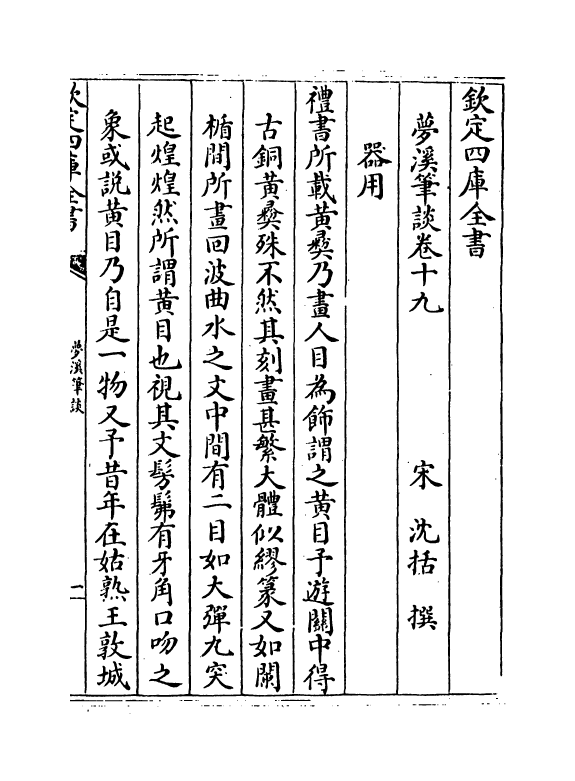 欽定四庫全書
夢溪筆談卷十九
宋 沈括 撰
器用
禮書所載黄彛乃畫人目為飾謂之黄目予遊關中得
古銅黄彛殊不然其刻畫甚繁大體似繆篆又如闌
楯間所畫回波曲水之文中間有二目如大彈丸突
起煌煌然所謂黄目也視其文髣髴有牙角口吻之
象或説黄目乃自是一物又予昔年在姑熟王敦城
欽定四庫全書
夢溪筆談